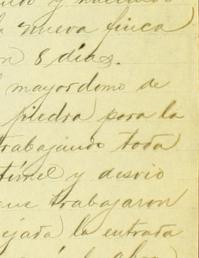 la nueva finca
8 días.
mayordomo de
piedra para la
trabajando toda
túnel y desvio
que trabajaron
la entrada